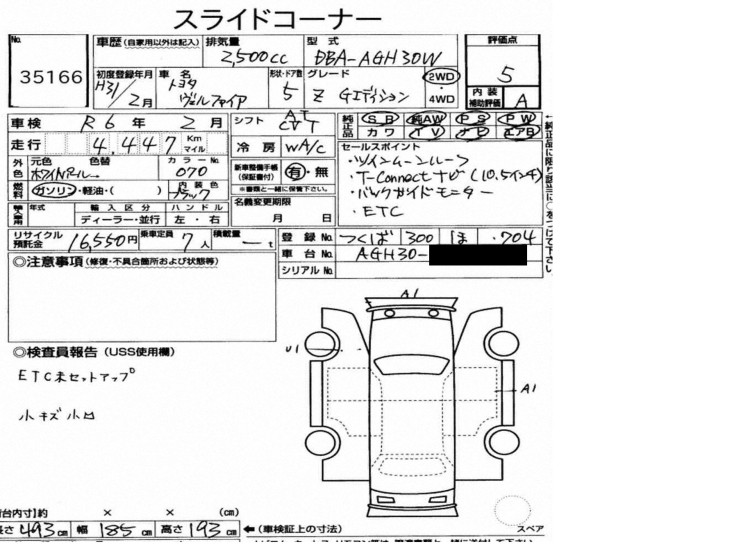 スライドコーナー
No. 35166
車歴 (自家用以外は記入) 排気量 2,500cc 型式 DBA-AGH30W 評価点 5
初度登録年月 H31/2月 車名 トヨタ ヴェルファイア 形状・ドア数 5 グレード Z Gエディション 2WD ・4WD 内装補助評価 A
車検 R6年 2月 シフト AT CVT 純正品 SB 純AW PS PW
カワ TV ナビ エアB
走行 4,447 Km マイル 冷房 WA/c
セールスポイント
・ツインムーンルーフ
・T-Connectナビ(10.5インチ)
・バックガイドモニター
・ETC
外色 元色 ホワイトパール 色替 カラーNo. 070
新車整備手帳(保証書付) 有・無
※書類と一緒に保管下さい。
燃料 ガソリン・軽油・( ) 内装色 ブラック
名義変更期限 月 日
輸入車用 年式 輸入区分 ディーラー・並行 ハンドル 左・右
リサイクル預託金 16,550円 乗車定員 7人 積載量 ー t
登録No. つくば 300 ほ ・704
車台No. AGH30-
シリアルNo.
◎注意事項 (修復・不具合箇所および状態等)
A1
U1
A1
◎検査員報告 (USS使用欄)
ETC未セットアップ
小キズ小凹
荷台内寸]約 × × (cm)
長さ 493cm 幅 185cm 高さ 193cm ←(車検証上の寸法)
スペア